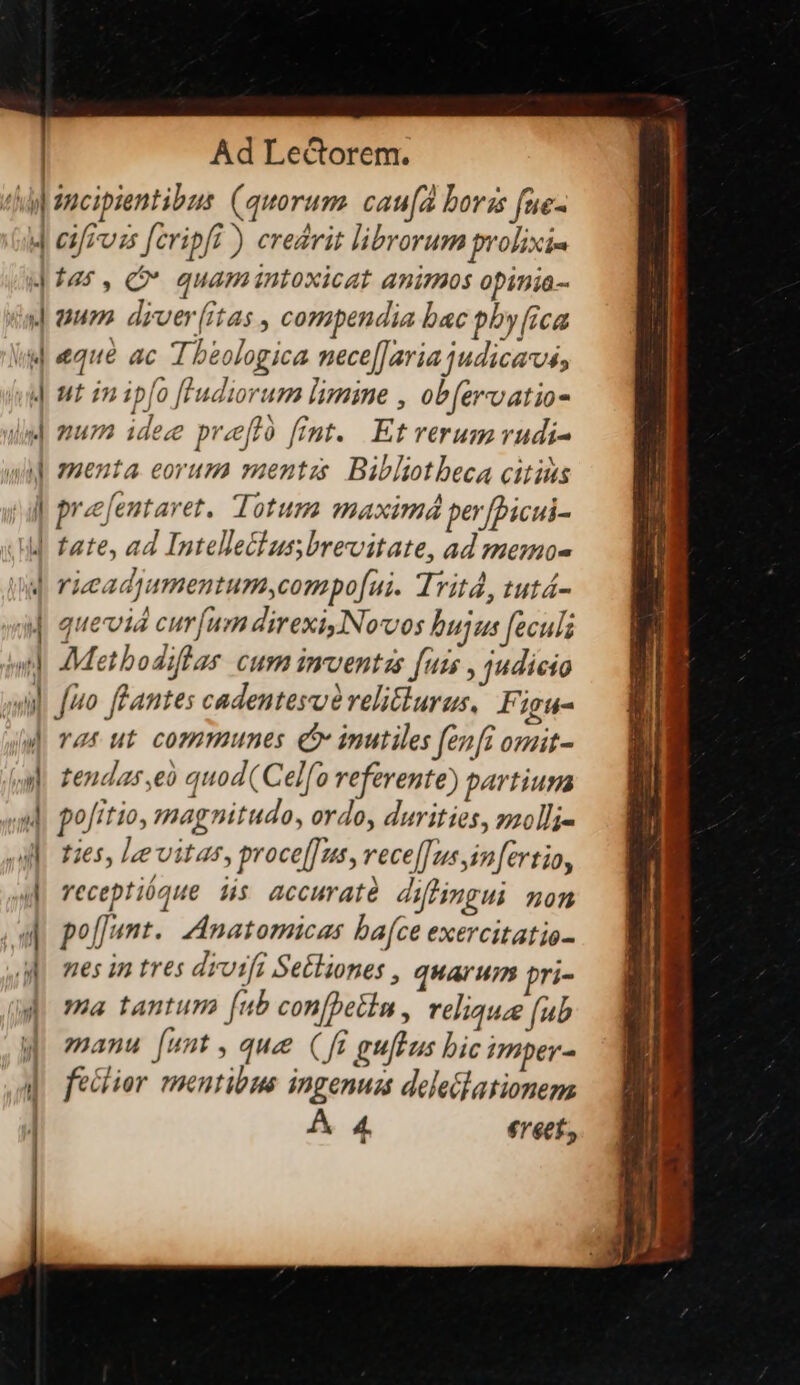 Ad Lectorem.
incipientibus (quorum causâ horis sue-
cisivis scripsi) creârit librorum prolixi-
tas, & quam intoxicat animos opinio-
num diversitas, compendia hæc physica
æquè ac Theologica necessaria judicavi,
ut in ipso studiorum limine, observatio-
num ideæ præstò sint. Et rerum rudi-
menta eorum mentis Bibliotheca citiùs
præsentaret. Totum maximâ perspicui-
tate, ad Intellectus; brevitate, ad memo-
riæ adjumentum, composui. Tritâ, tutâ-
que viâ cursum direxi, Novos hujus seculi
Methodistas cum inventis suis, judicio
suo stantes cadentesvè relicturus. Figu-
ras ut communes & inutiles sensi omit-
tendas, eò quod (Celso referente) partium
positio, magnitudo, ordo, durities, molli-
ties, lævitas, processus, recessus, insertio,
receptióque iis accuratè distingui non
possunt. Anatomicas hasce exercitatio-
nes in tres divisi Sectiones, quarum pri-
ma tantum sub conspectu, reliquæ sub
manu sunt, quæ (si gustus hic imper-
fectior mentibus ingenuis delectationem
A 4 creet,